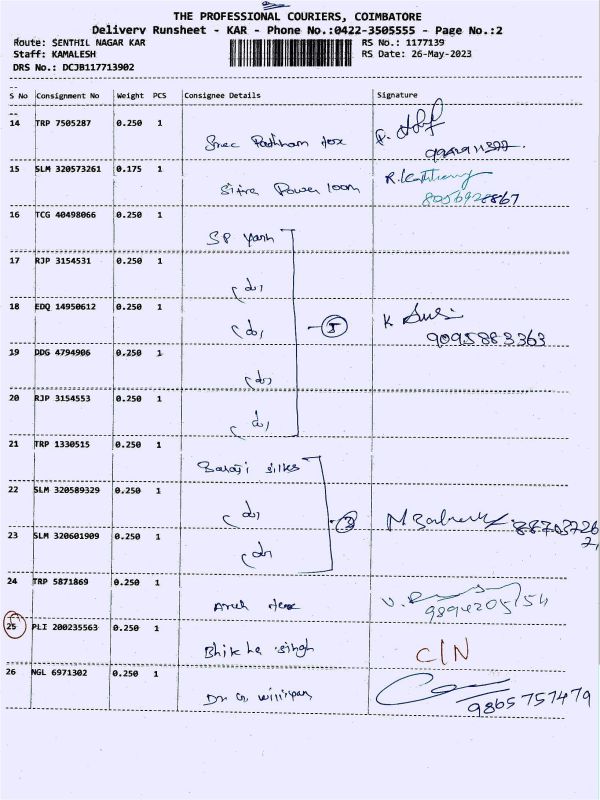 THE PROFESSIONAL COURIERS, COIMBATORE
Delivery Runsheet - KAR - Phone No.:0422-3505555 - Page No.:2
Route: SENTHIL NAGAR KAR RS No.: 1177139
Staff: KAMALESH RS Date: 26-May-2023
DRS No.: DCJB117713902
S No Consignment No Weight PCS Consignee Details Signature
14 TRP 7505287 0.250 1
Sree tex
15 SLM 320573261 0.175 1
Power loom 8056928867
16 TCG 40498066 0.250 1
SP Yarn
17 RJP 3154531 0.250 1
(do)
18 EDQ 14950612 0.250 1
(do) 5 K
9095883363
19 DDG 4794906 0.250 1
(do)
20 RJP 3154553 0.250 1
(do)
21 TRP 1330515 0.250 1
Balaji silks
22 SLM 320589329 0.250 1
(do) 3
23 SLM 320601909 0.250 1
(do)
24 TRP 5871869 0.250 1
tex 9894205154
25 PLI 200235563 0.250 1
singh C/N
26 NGL 6971302 0.250 1
Dr. 9865757479